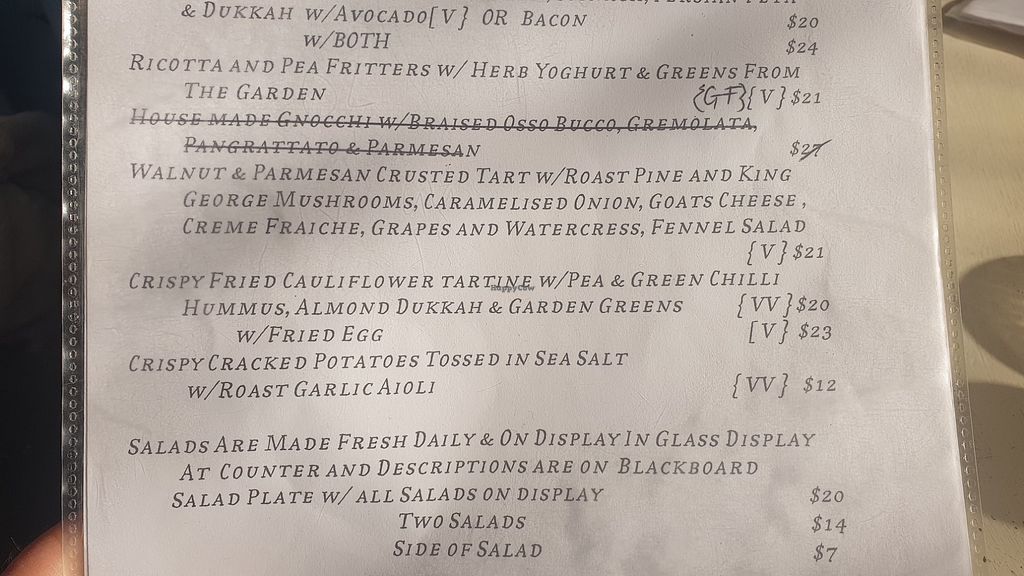 & Dukkah w/Avocado[V} or Bacon $20
w/Both $24
Ricotta and Pea Fritters w/ Herb Yoghurt & Greens From
The Garden {GF}{V} $21
House made Gnocchi w/Braised Osso Bucco, Gremolata,
Pangrattato & Parmesan $27
Walnut & Parmesan Crusted Tart w/Roast Pine and King
George Mushrooms, Caramelised Onion, Goats Cheese ,
Creme Fraiche, Grapes and Watercress, Fennel Salad
{V} $21
Crispy Fried Cauliflower tartine w/Pea & Green Chilli
Hummus, Almond Dukkah & Garden Greens {VV} $20
w/Fried Egg [V} $23
Crispy Cracked Potatoes Tossed in Sea Salt
w/Roast Garlic Aioli {VV} $12
Salads Are Made Fresh Daily & On Display In Glass Display
At Counter and Descriptions are on Blackboard
Salad Plate w/ all Salads on display $20
Two Salads $14
Side of Salad $7
HappyCow